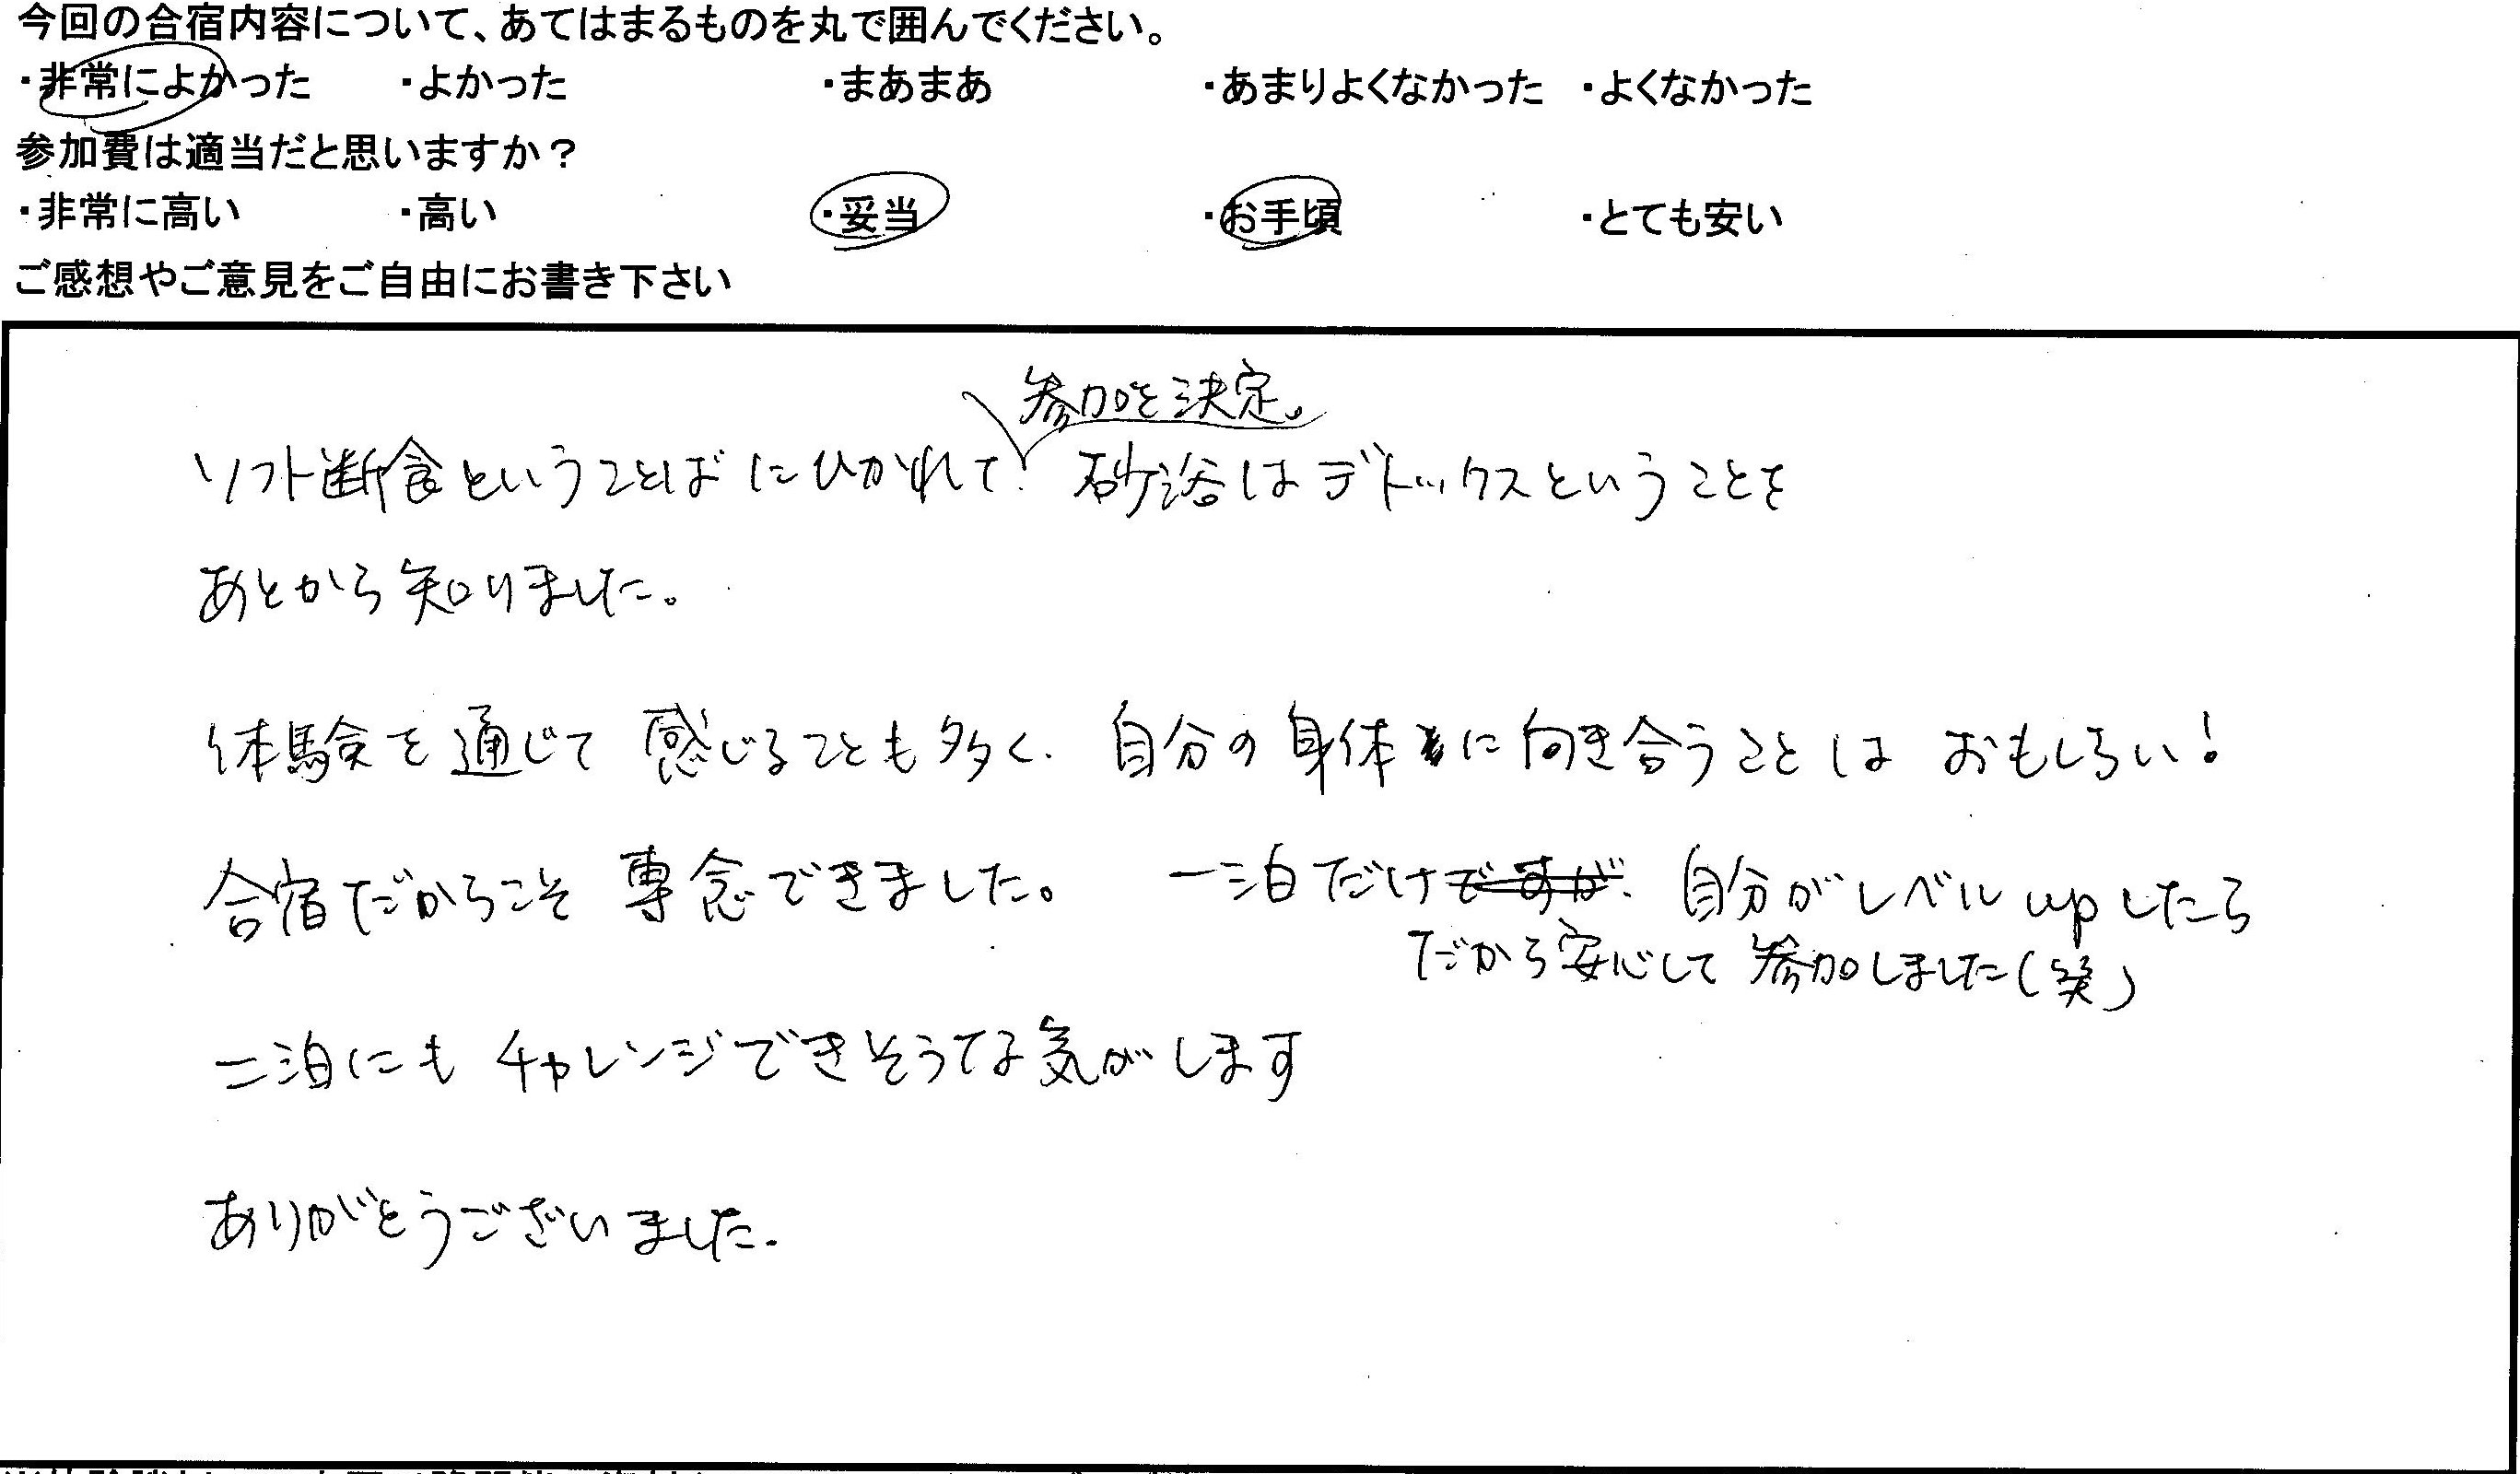 今回の合宿内容について、あてはまるものを丸で囲んでください。
・非常によかった ・よかった ・まあまあ ・あまりよくなかった ・よくなかった
参加費は適当だと思いますか？
・非常に高い ・高い ・妥当 ・お手頃 ・とても安い
ご感想やご意見をご自由にお書き下さい
参加を決定。
ソフト断食ということばにひかれて 砂浴はデトックスということを
あとから知りました。
体験を通じて 感じることも多く、自分の身体に向き合うことは おもしろい！
合宿だからこそ 専念できました。 一泊だけですが、自分がレベルupしたら
だから安心して 参加しました(笑)
二泊にも チャレンジできそうな気がします
ありがとうございました.